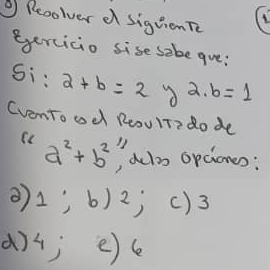 8) Resolver el siguiente
Ejercicio si se sabe que:
Si: a + b = 2 y a.b = 1
Cuanto es el Resultado de
"a² + b²", de las opciones:
a) 1 ; b) 2 ; c) 3
d) 4 ; e) 6